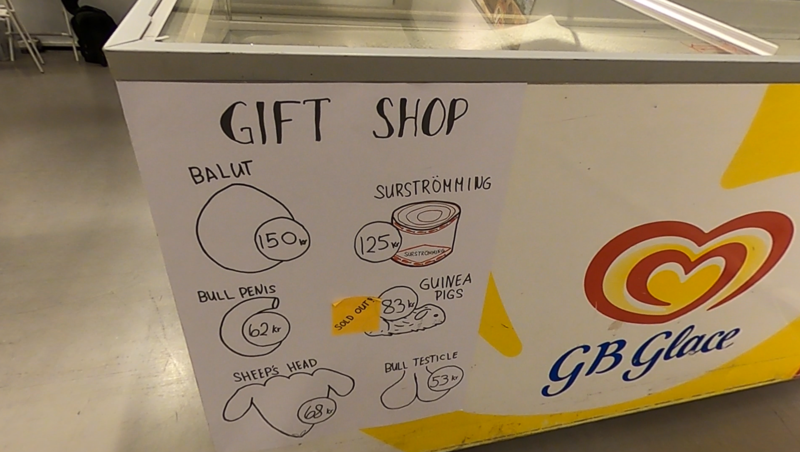 GIFT SHOP
BALUT
150 kr
SURSTRÖMMING
125 kr
SURSTRÖMMING
BULL PENIS
62 kr
GUINEA
PIGS
83 kr
SOLD OUT!
SHEEP'S HEAD
68 kr
BULL TESTICLE
53 kr
GB Glace